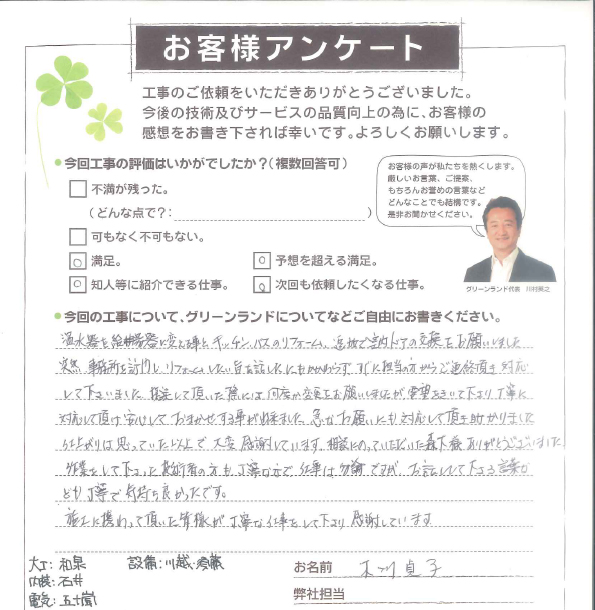 お客様アンケート
工事のご依頼をいただきありがとうございました。
今後の技術及びサービスの品質向上の為に、お客様の
感想をお書き下されば幸いです。よろしくお願いします。
●今回工事の評価はいかがでしたか?(複数回答可)
不満が残った。
(どんな点で?: )
可もなく不可もない。
○ 満足。
○ 予想を超える満足。
○ 知人等に紹介できる仕事。
○ 次回も依頼したくなる仕事。
お客様の声が私たちを熱くします。
厳しいお言葉、ご提案、
もちろんお誉めの言葉など
どんなことでも結構です。
是非お聞かせください。
グリーンランド代表 川村英之
●今回の工事について、グリーンランドについてなどご自由にお書きください。
温水器を給湯器に変える事とキッチン、バスのリフォーム、追加で室内ドアの交換をお願いしました
突然、事務所を訪れ、リフォームしたい旨を話したにもかかわらず、すぐに担当の方からご連絡頂き対応
して下さいました。提案して頂いた際には何度か変更をお願いしましたが、要望をきいて下さり、丁寧に
対応して頂け安心しておまかせする事が出来ました。急なお願いにも対応して頂き助かりました
仕上がりは思っていた以上で大変感謝しています。相談にのっていただいた森下様ありがとうございました
作業をして下さった業者の方も丁寧な方で仕事は勿論ですが、お話しして下さる言葉が
とても丁寧で気持ち良かったです。
施工に携わって頂いた皆様が丁寧な仕事をして下さり感謝しています
大工: 和泉
設備: 川越・斎藤
内装: 石井
電気: 五十嵐
お名前 木川貞子
弊社担当